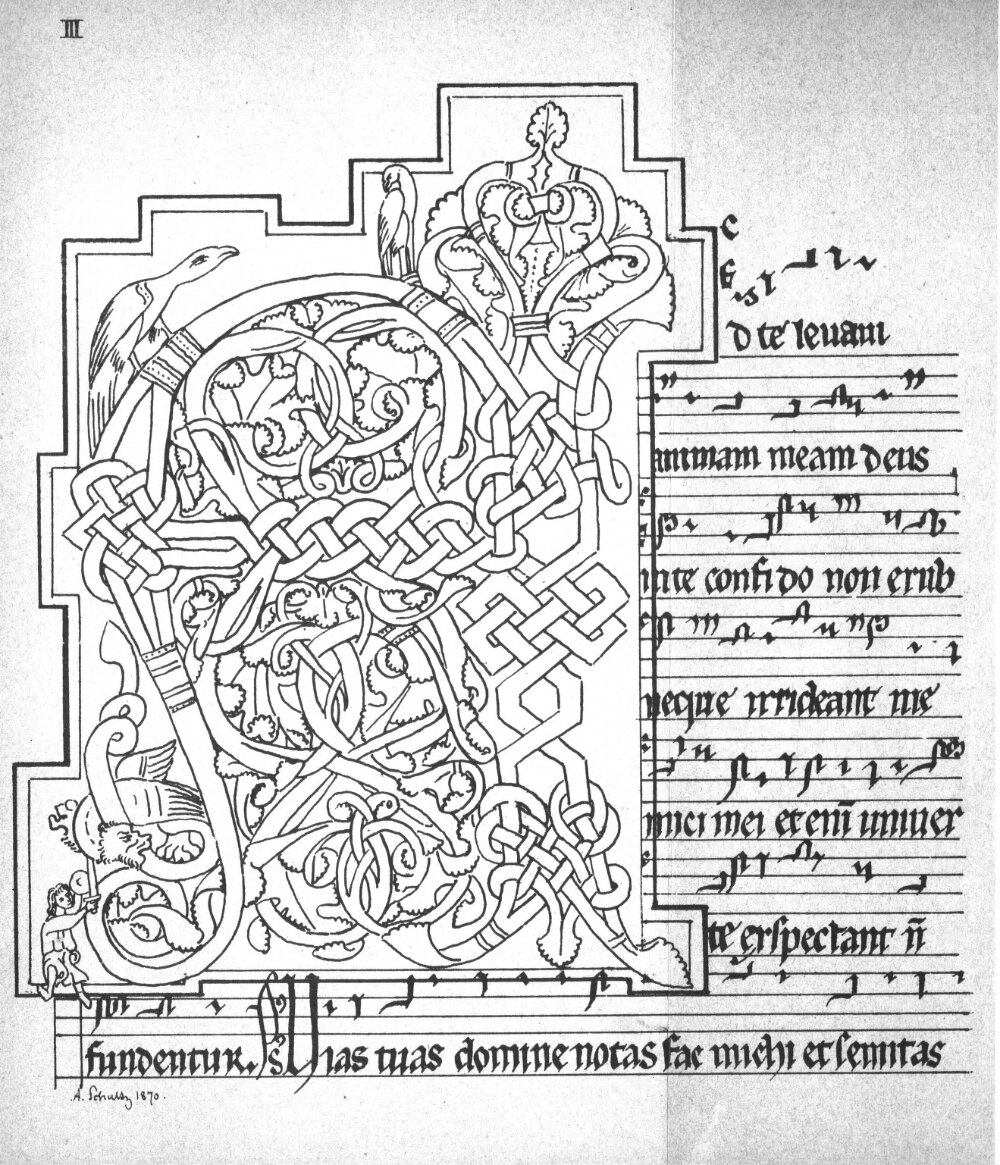 III
d te levavi
animam meam deus
in te confido non erub
neque irrideant me
inici mei et enī univer
te exspectant n̄
fundentur. Vias tuas domine notas fac michi et semitas
A. Schultz 1870.